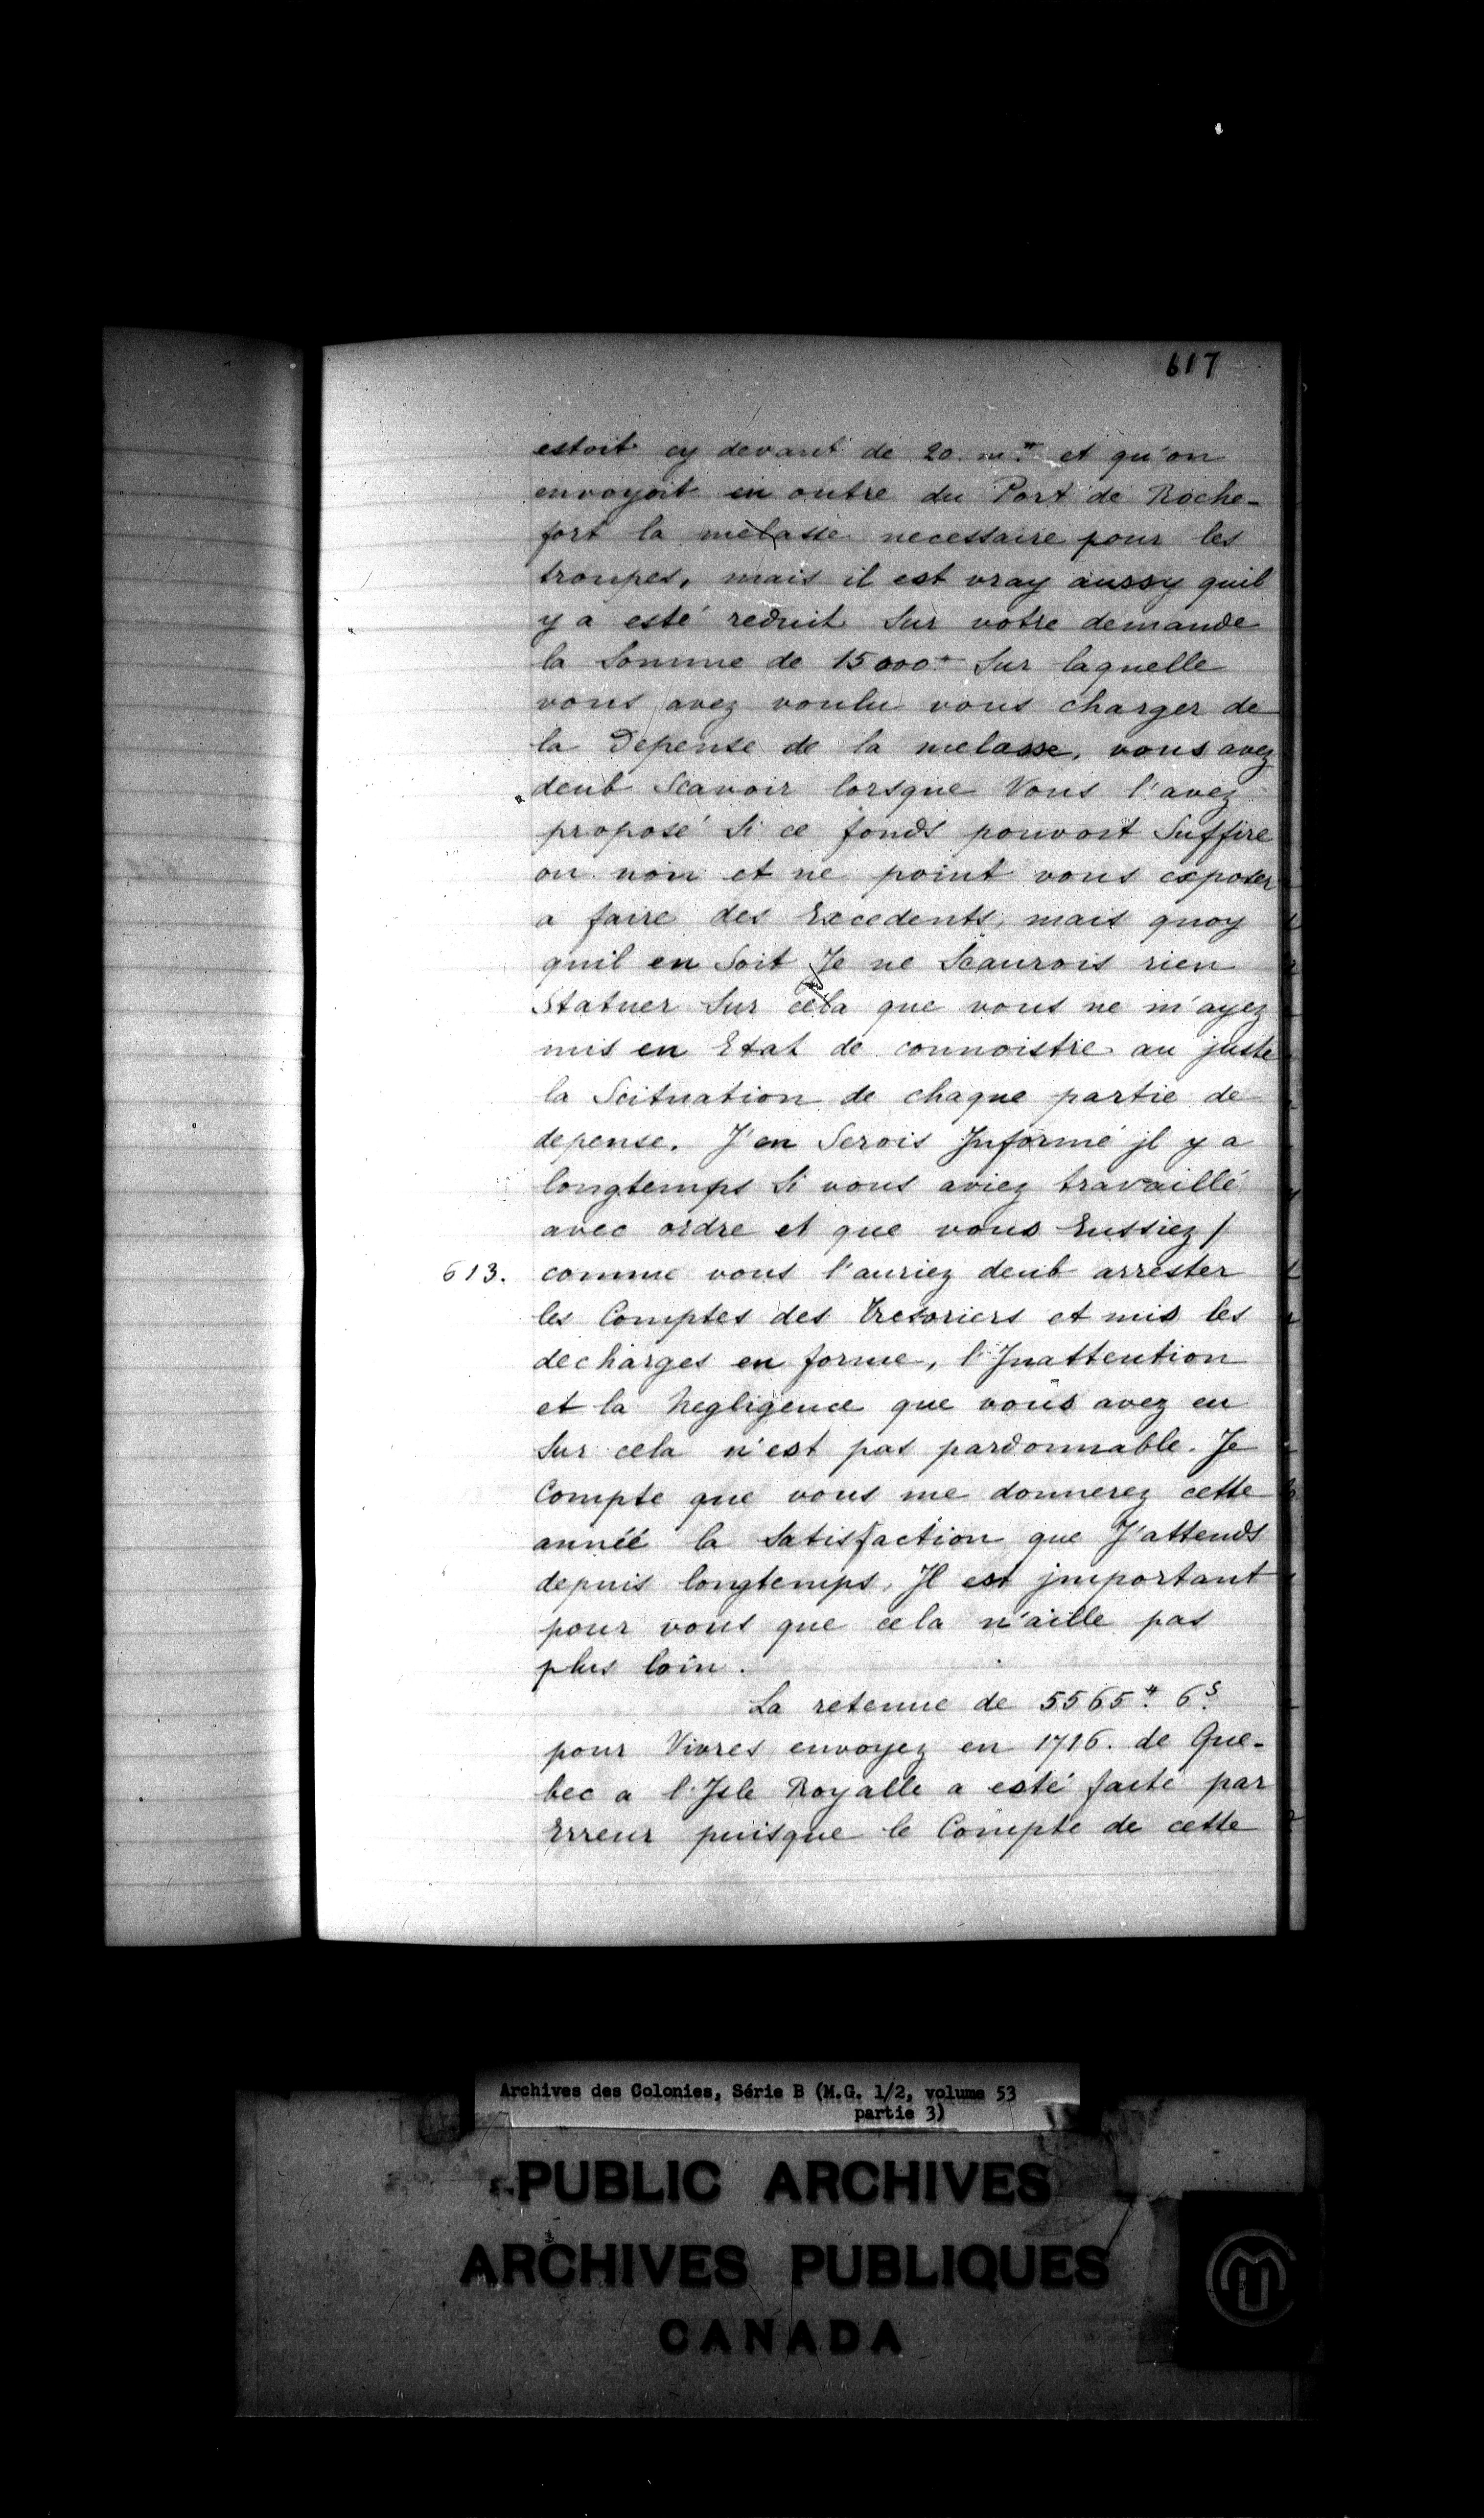 617
estoit cy devant de 20. m.# et qu'on
envoyoit en outre du Port de Roche-
fort la melasse necessaire pour les
troupes, mais il est vray aussy quil
y a esté reduit Sur votre demande
la Somme de 15000# Sur laquelle
vous avez voulu vous charger de
la Depense de la melasse, vous avez
deub Scavoir lorsque Vous l'avez
proposé Si ce fonds pouvoit Suffire
ou non et ne point vous exposer
a faire des Excedents, mais quoy
quil en Soit Je ne Scaurois rien
Statuer Sur cela que vous ne m'ayez
mis en Etat de connoistre au juste
la Scituation de chaque partie de
depense. J'en Serois Informé jl y a
longtemps Si vous aviez travaillé
avec ordre et que vous Eussiez /
613. comme vous l'auriez deub arrester
les Comptes des Tresoriers et mis les
decharges en forme, l'Inattention
et la Negligence que vous avez eu
Sur cela n'est pas pardonnable. Je
Compte que vous me donnerez cette
année la Satisfaction que J'attends
depuis longtemps, Il est jmportant
pour vous que cela n'aille pas
plus loin.
La retenue de 5565# 6s
pour Vivres envoyez en 1716. de Que-
bec a l'Isle Royalle a esté faite par
Erreur puisque le Compte de cette
Archives des Colonies, Série B (M.G. 1/2, volume 53
partie 3)
PUBLIC ARCHIVES
ARCHIVES PUBLIQUES
CANADA